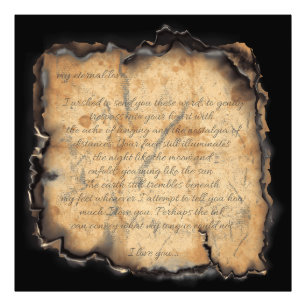 my eternal love...
I wished to send you these words to gently
trespass into your heart with
the ache of longing and the nostalgia of
distances. Your face still illuminates
the night like the moon and
enfolds you ming like the sun.
The earth still trembles beneath
my feet whenever I attempt to tell you how
much I love you. Perhaps the ink
can convey what my tongue could not.
I love you...